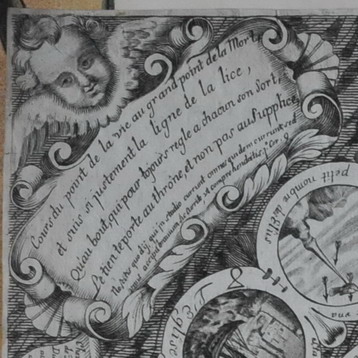 Cours du point de la vie au grand point de la Mort,
et suis si justement la ligne de la lice,
Qu'au bout, qui pour toujours regle a chacun son sort,
Le tien te porte au throne, et non pas au supplice.
ij qui in stadio currunt omnes quidem currunt, sed
unus accipit bravium. Sic currite ut comprehendatis. 1. Cor. 9
petit nombre des Elus
L'Eglise
una